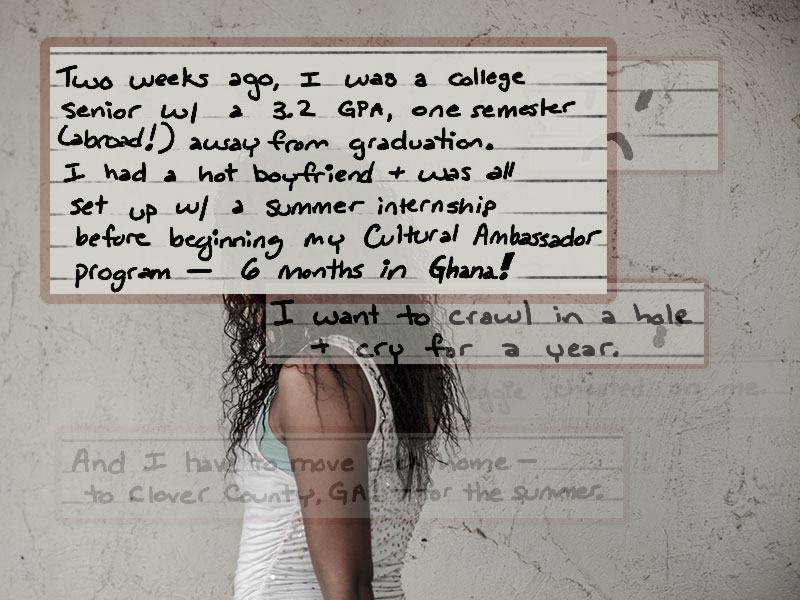 Two weeks ago, I was a college
senior w/ a 3.2 GPA, one semester
(abroad!) away from graduation.
I had a hot boyfriend + was all
set up w/ a summer internship
before beginning my Cultural Ambassador
program — 6 months in Ghana!
I want to crawl in a hole
+ cry for a year.
cheated on me.
And I have to move back home —
to Clover County, GA, for the summer.